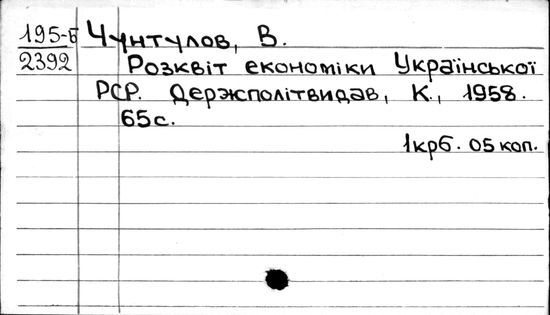 195-Б Чунтулов, В.
2392 Розквіт економіки Української
РСР. Держсполітвидав, К., 1958.
65с.
1крб. 05 коп.